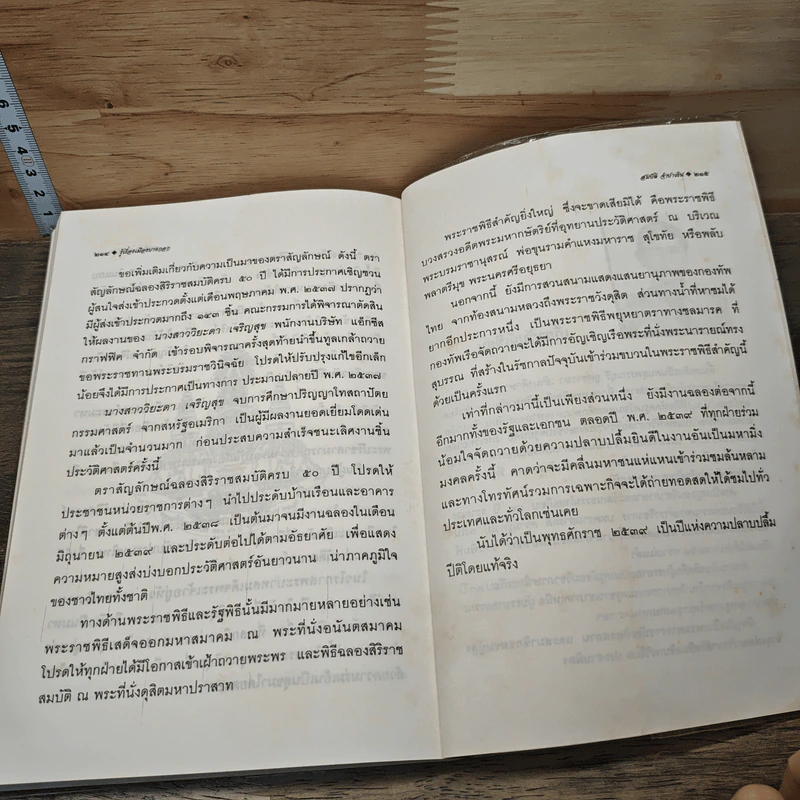 ๒๑๔ ◆ รู้เรื่องเมืองบางกอก
ขอเพิ่มเติมเกี่ยวกับความเป็นมาของตราสัญลักษณ์ ดังนี้ ตรา
สัญลักษณ์ฉลองสิริราชสมบัติครบ ๕๐ ปี ได้มีการประกาศเชิญชวน
ผู้สนใจส่งเข้าประกวดตั้งแต่เดือนพฤษภาคม พ.ศ. ๒๕๓๗ ปรากฏว่า
มีผู้ส่งเข้าประกวดมากถึง ๑๔๓ ชิ้น คณะกรรมการได้พิจารณาตัดสิน
ให้ผลงานของ นางสาววิยะดา เจริญสุข พนักงานบริษัท แอ็กซีส
กราฟฟิค จำกัด เข้ารอบพิจารณาครั้งสุดท้ายนำขึ้นทูลเกล้าถวาย
ขอพระราชทานพระบรมราชวินิจฉัย โปรดให้ปรับปรุงแก้ไขอีกเล็ก
น้อยจึงได้มีการประกาศเป็นทางการ ประมาณปลายปี พ.ศ. ๒๕๓๗
นางสาววิยะดา เจริญสุข จบการศึกษาปริญญาโทสถาปัตย
กรรมศาสตร์ จากสหรัฐอเมริกา เป็นผู้มีผลงานยอดเยี่ยมโดดเด่น
มาแล้วเป็นจำนวนมาก ก่อนประสบความสำเร็จชนะเลิศงานชิ้น
ประวัติศาสตร์ครั้งนี้
ตราสัญลักษณ์ฉลองสิริราชสมบัติครบ ๕๐ ปี โปรดให้
ประชาชนหน่วยราชการต่างๆ นำไปประดับบ้านเรือนและอาคาร
ต่างๆ ตั้งแต่ต้นปีพ.ศ. ๒๕๓๘ เป็นต้นมาจนมีงานฉลองในเดือน
มิถุนายน ๒๕๓๙ และประดับต่อไปได้ตามอัธยาศัย เพื่อแสดง
ความหมายสูงส่งบ่งบอกประวัติศาสตร์อันยาวนาน น่าภาคภูมิใจ
ของชาวไทยทั้งชาติ
ทางด้านพระราชพิธีและรัฐพิธีนั้นมีมากมายหลายอย่างเช่น
พระราชพิธีเสด็จออกมหาสมาคม ณ พระที่นั่งอนันตสมาคม
โปรดให้ทุกฝ่ายได้มีโอกาสเข้าเฝ้าถวายพระพร และพิธีฉลองสิริราช
สมบัติ ณ พระที่นั่งดุสิตมหาปราสาท
สมบัติ จำปาเงิน ◆ ๒๑๕
พระราชพิธีสำคัญยิ่งใหญ่ ซึ่งจะขาดเสียมิได้ คือพระราชพิธี
บวงสรวงอดีตพระมหากษัตริย์ที่อุทยานประวัติศาสตร์ ณ บริเวณ
พระบรมราชานุสรณ์ พ่อขุนรามคำแหงมหาราช สุโขทัย หรือพลับ
พลาตรีมุข พระนครศรีอยุธยา
นอกจากนี้ ยังมีการสวนสนามแสดงแสนยานุภาพของกองทัพ
ไทย จากท้องสนามหลวงถึงพระราชวังดุสิต ส่วนทางน้ำที่หาชมได้
ยากอีกประการหนึ่ง เป็นพระราชพิธีพยุหยาตราทางชลมารค ที่
กองทัพเรือจัดถวายจะได้มีการอัญเชิญเรือพระที่นั่งพระนารายณ์ทรง
สุบรรณ ที่สร้างในรัชกาลปัจจุบันเข้าร่วมขบวนในพระราชพิธีสำคัญนี้
ด้วยเป็นครั้งแรก
เท่าที่กล่าวมานี้เป็นเพียงส่วนหนึ่ง ยังมีงานฉลองต่อจากนี้
อีกมากทั้งของรัฐและเอกชน ตลอดปี พ.ศ. ๒๕๓๙ ที่ทุกฝ่ายร่วม
น้อมใจจัดถวายด้วยความปลาบปลื้มยินดีในงานอันเป็นมหามิ่ง
มงคลครั้งนี้ คาดว่าจะมีคลื่นมหาชนแห่แหนเข้าร่วมชมล้นหลาม
และทางโทรทัศน์รวมการเฉพาะกิจจะได้ถ่ายทอดสดให้ได้ชมไปทั่ว
ประเทศและทั่วโลกเช่นเคย
นับได้ว่าเป็นพุทธศักราช ๒๕๓๙ เป็นปีแห่งความปลาบปลื้ม
ปีติโดยแท้จริง
6
5
4
3
2
1